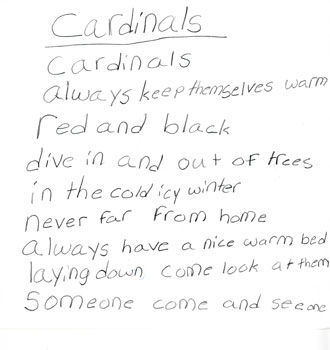 Cardinals
Cardinals
always keep themselves warm
red and black
dive in and out of trees
in the cold icy winter
never far from home
always have a nice warm bed
laying down come look at them
Someone come and see one